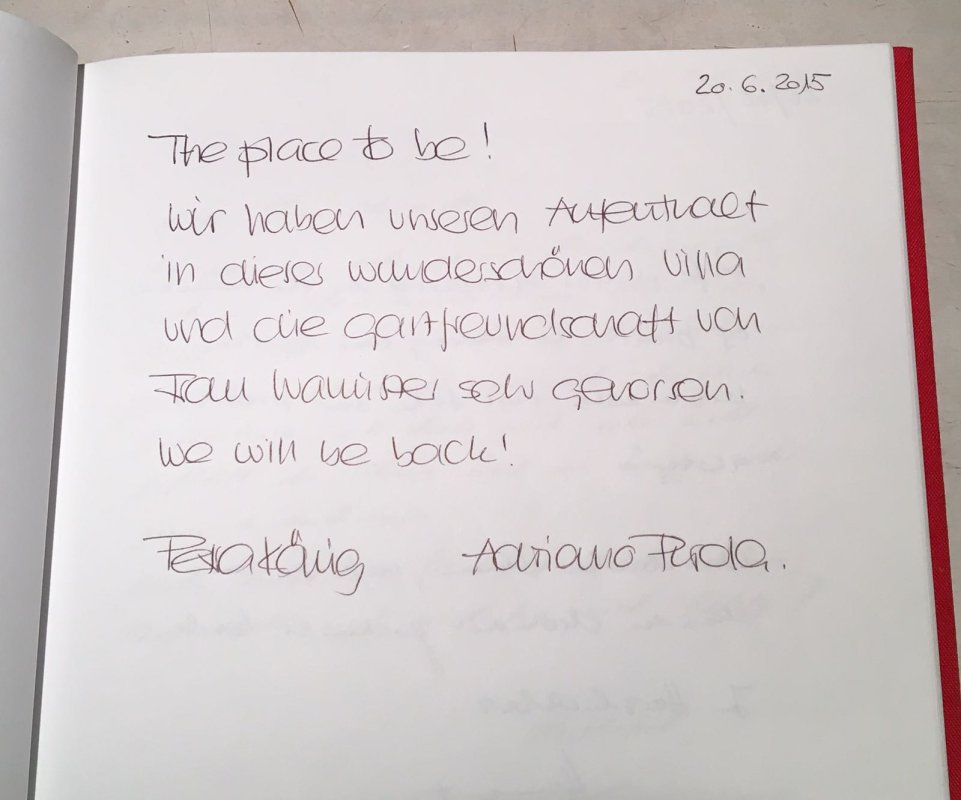 20.6.2015
The place to be!
Wir haben unseren Aufenthalt
in dieser wunderschönen Villa
und die Gastfreundschaft von
Frau sehr genossen.
We will be back!
Petra König Adriano